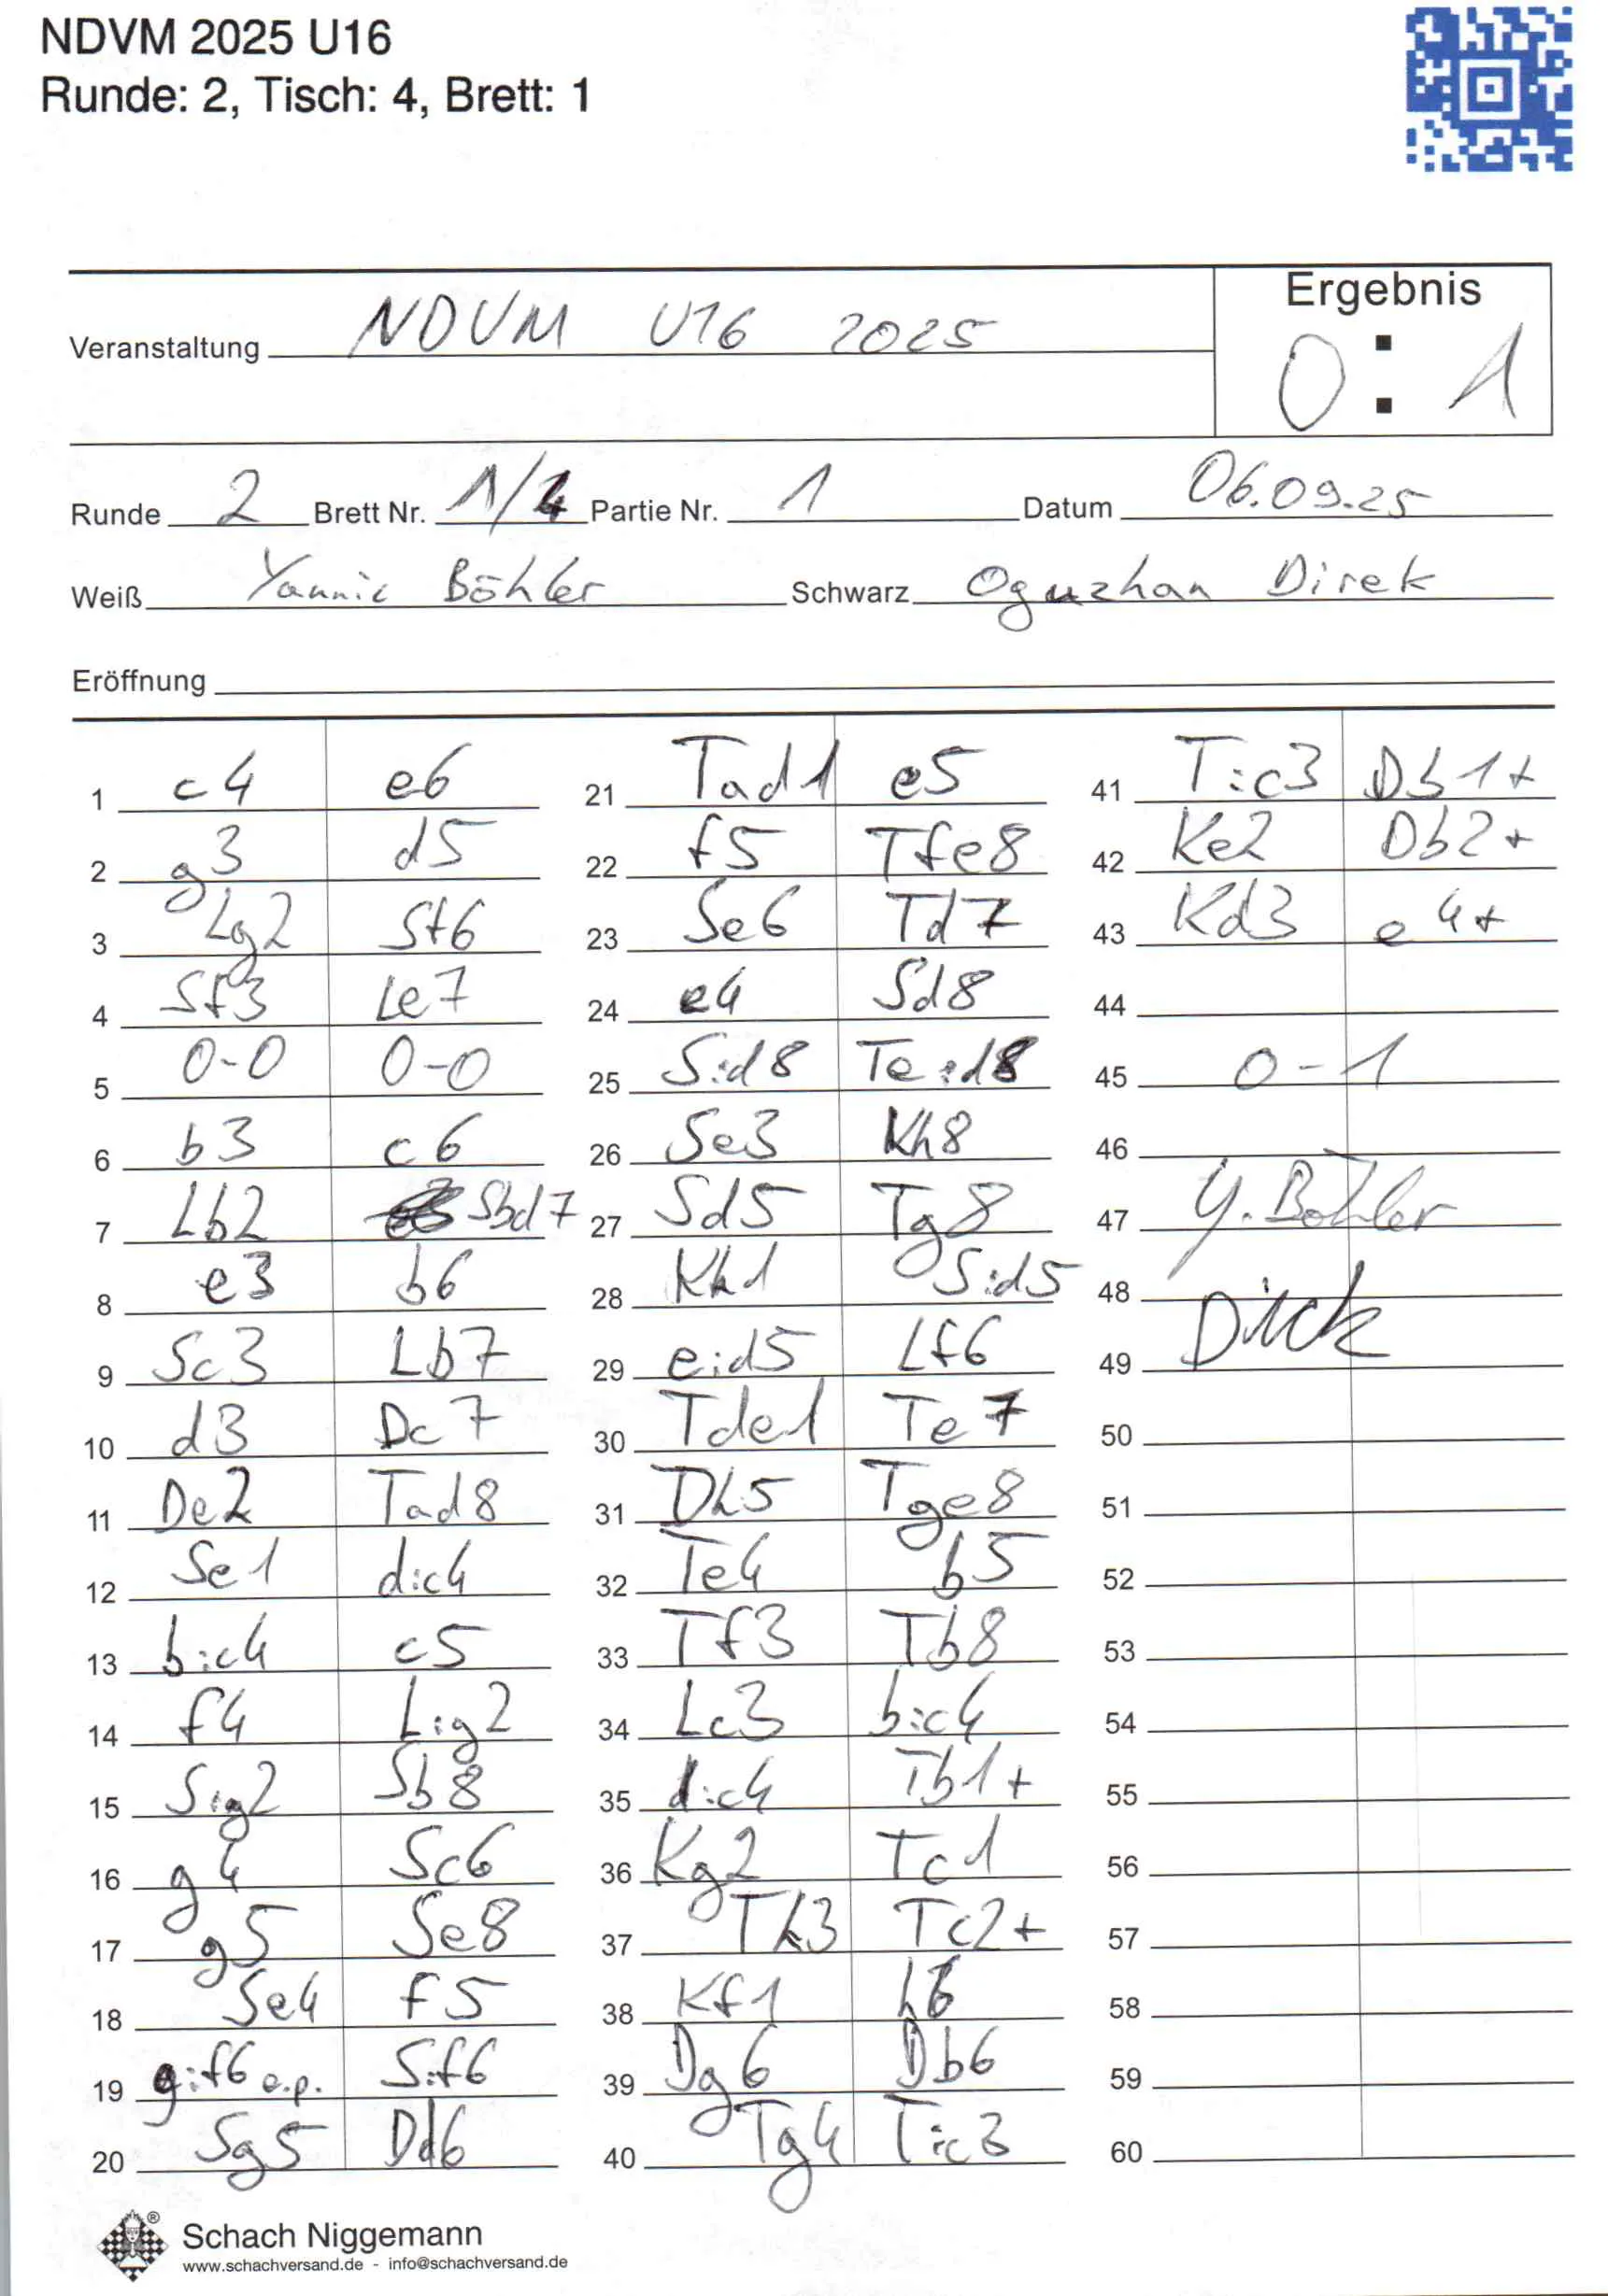 NDVM 2025 U16
Runde: 2, Tisch: 4, Brett: 1
Ergebnis
Veranstaltung NDVM U16 2025
0 : 1
Runde 2 Brett Nr. 1/4 Partie Nr. 1 Datum 06.09.25
Weiß Yannic Böhler Schwarz Oguzhan Direk
Eröffnung
1 c4 e6
2 g3 d5
3 Lg2 Sf6
4 Sf3 Le7
5 0-0 0-0
6 b3 c6
7 Lb2 Sbd7
8 e3 b6
9 Sc3 Lb7
10 d3 Dc7
11 De2 Tad8
12 Se1 d:c4
13 b:c4 c5
14 f4 L:g2
15 S:g2 Sb8
16 g4 Sc6
17 g5 Se8
18 Se4 f5
19 g:f6 e.p. S:f6
20 Sg5 Dd6
21 Tad1 e5
22 f5 Tfe8
23 Se6 Td7
24 e4 Sd8
25 S:d8 Te:d8
26 Se3 Kh8
27 Sd5 Tg8
28 Kh1 S:d5
29 e:d5 Lf6
30 Tde1 Te7
31 Dh5 Tge8
32 Te4 b5
33 Tf3 Tb8
34 Lc3 b:c4
35 d:c4 Tb1+
36 Kg2 Tc1
37 Th3 Tc2+
38 Kf1 h6
39 Dg6 Db6
40 Tg4 T:c3
41 T:c3 Db1+
42 Ke2 Db2+
43 Kd3 e4+
44
45 0-1
46
47 Y. Böhler
48
49 Direk
50
51
52
53
54
55
56
57
58
59
60
®
Schach Niggemann
www.schachversand.de - info@schachversand.de